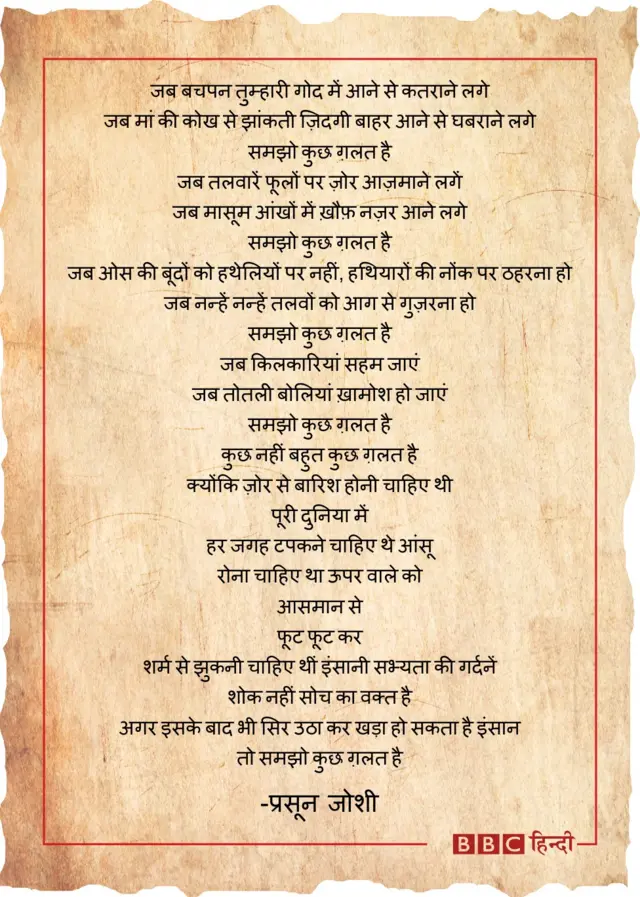 जब बचपन तुम्हारी गोद में आने से कतराने लगे
जब मां की कोख से झांकती ज़िदगी बाहर आने से घबराने लगे
समझो कुछ ग़लत है
जब तलवारें फूलों पर ज़ोर आज़माने लगें
जब मासूम आंखों में ख़ौफ़ नज़र आने लगे
समझो कुछ ग़लत है
जब ओस की बूंदों को हथेलियों पर नहीं, हथियारों की नोंक पर ठहरना हो
जब नन्हें नन्हें तलवों को आग से गुज़रना हो
समझो कुछ ग़लत है
जब किलकारियां सहम जाएं
जब तोतली बोलियां ख़ामोश हो जाएं
समझो कुछ ग़लत है
कुछ नहीं बहुत कुछ ग़लत है
क्योंकि ज़ोर से बारिश होनी चाहिए थी
पूरी दुनिया में
हर जगह टपकने चाहिए थे आंसू
रोना चाहिए था ऊपर वाले को
आसमान से
फूट फूट कर
शर्म से झुकनी चाहिए थीं इंसानी सभ्यता की गर्दनें
शोक नहीं सोच का वक्त है
अगर इसके बाद भी सिर उठा कर खड़ा हो सकता है इंसान
तो समझो कुछ ग़लत है
-प्रसून जोशी
BBC हिन्दी